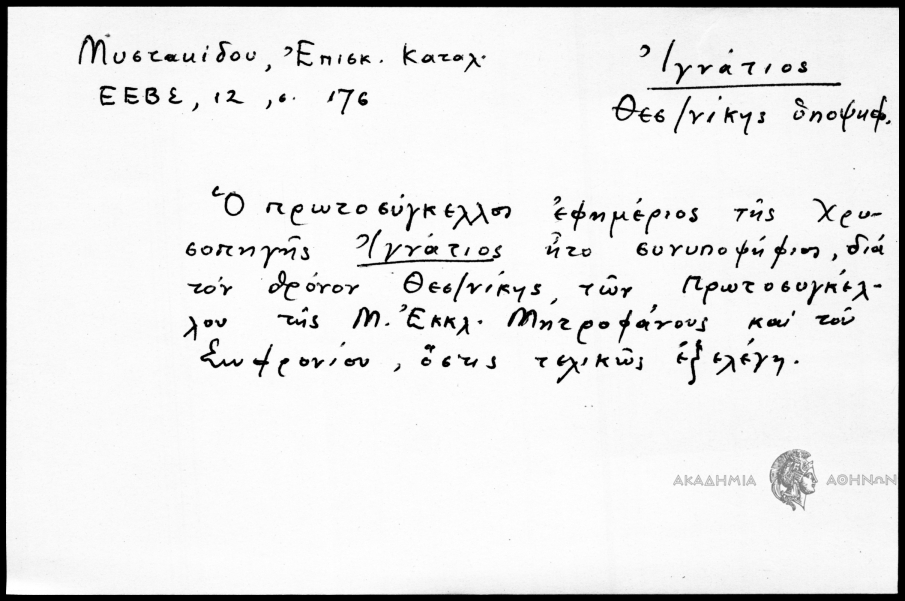 Μυστακίδου, Ἐπισκ. Καταλ.
ΕΕΒΣ, 12, σ. 176
Ἰγνάτιος
Θεσ/νίκης ὑποψηφ.
Ὁ πρωτοσύγκελλος ἐφημέριος τῆς Χρυ-
σοπηγῆς Ἰγνάτιος ἦτο συνυποψήφιος, διά
τόν θρόνον Θεσ/νίκης, τῶν Πρωτοσυγκέλ-
λου τῆς Μ. Ἐκκλ. Μητροφάνους καί τοῦ
Σωφρονίου, ὅστις τελικῶς ἐξελέγη.
ΑΚΑΔΗΜΙΑ ΑΘΗΝΩΝ